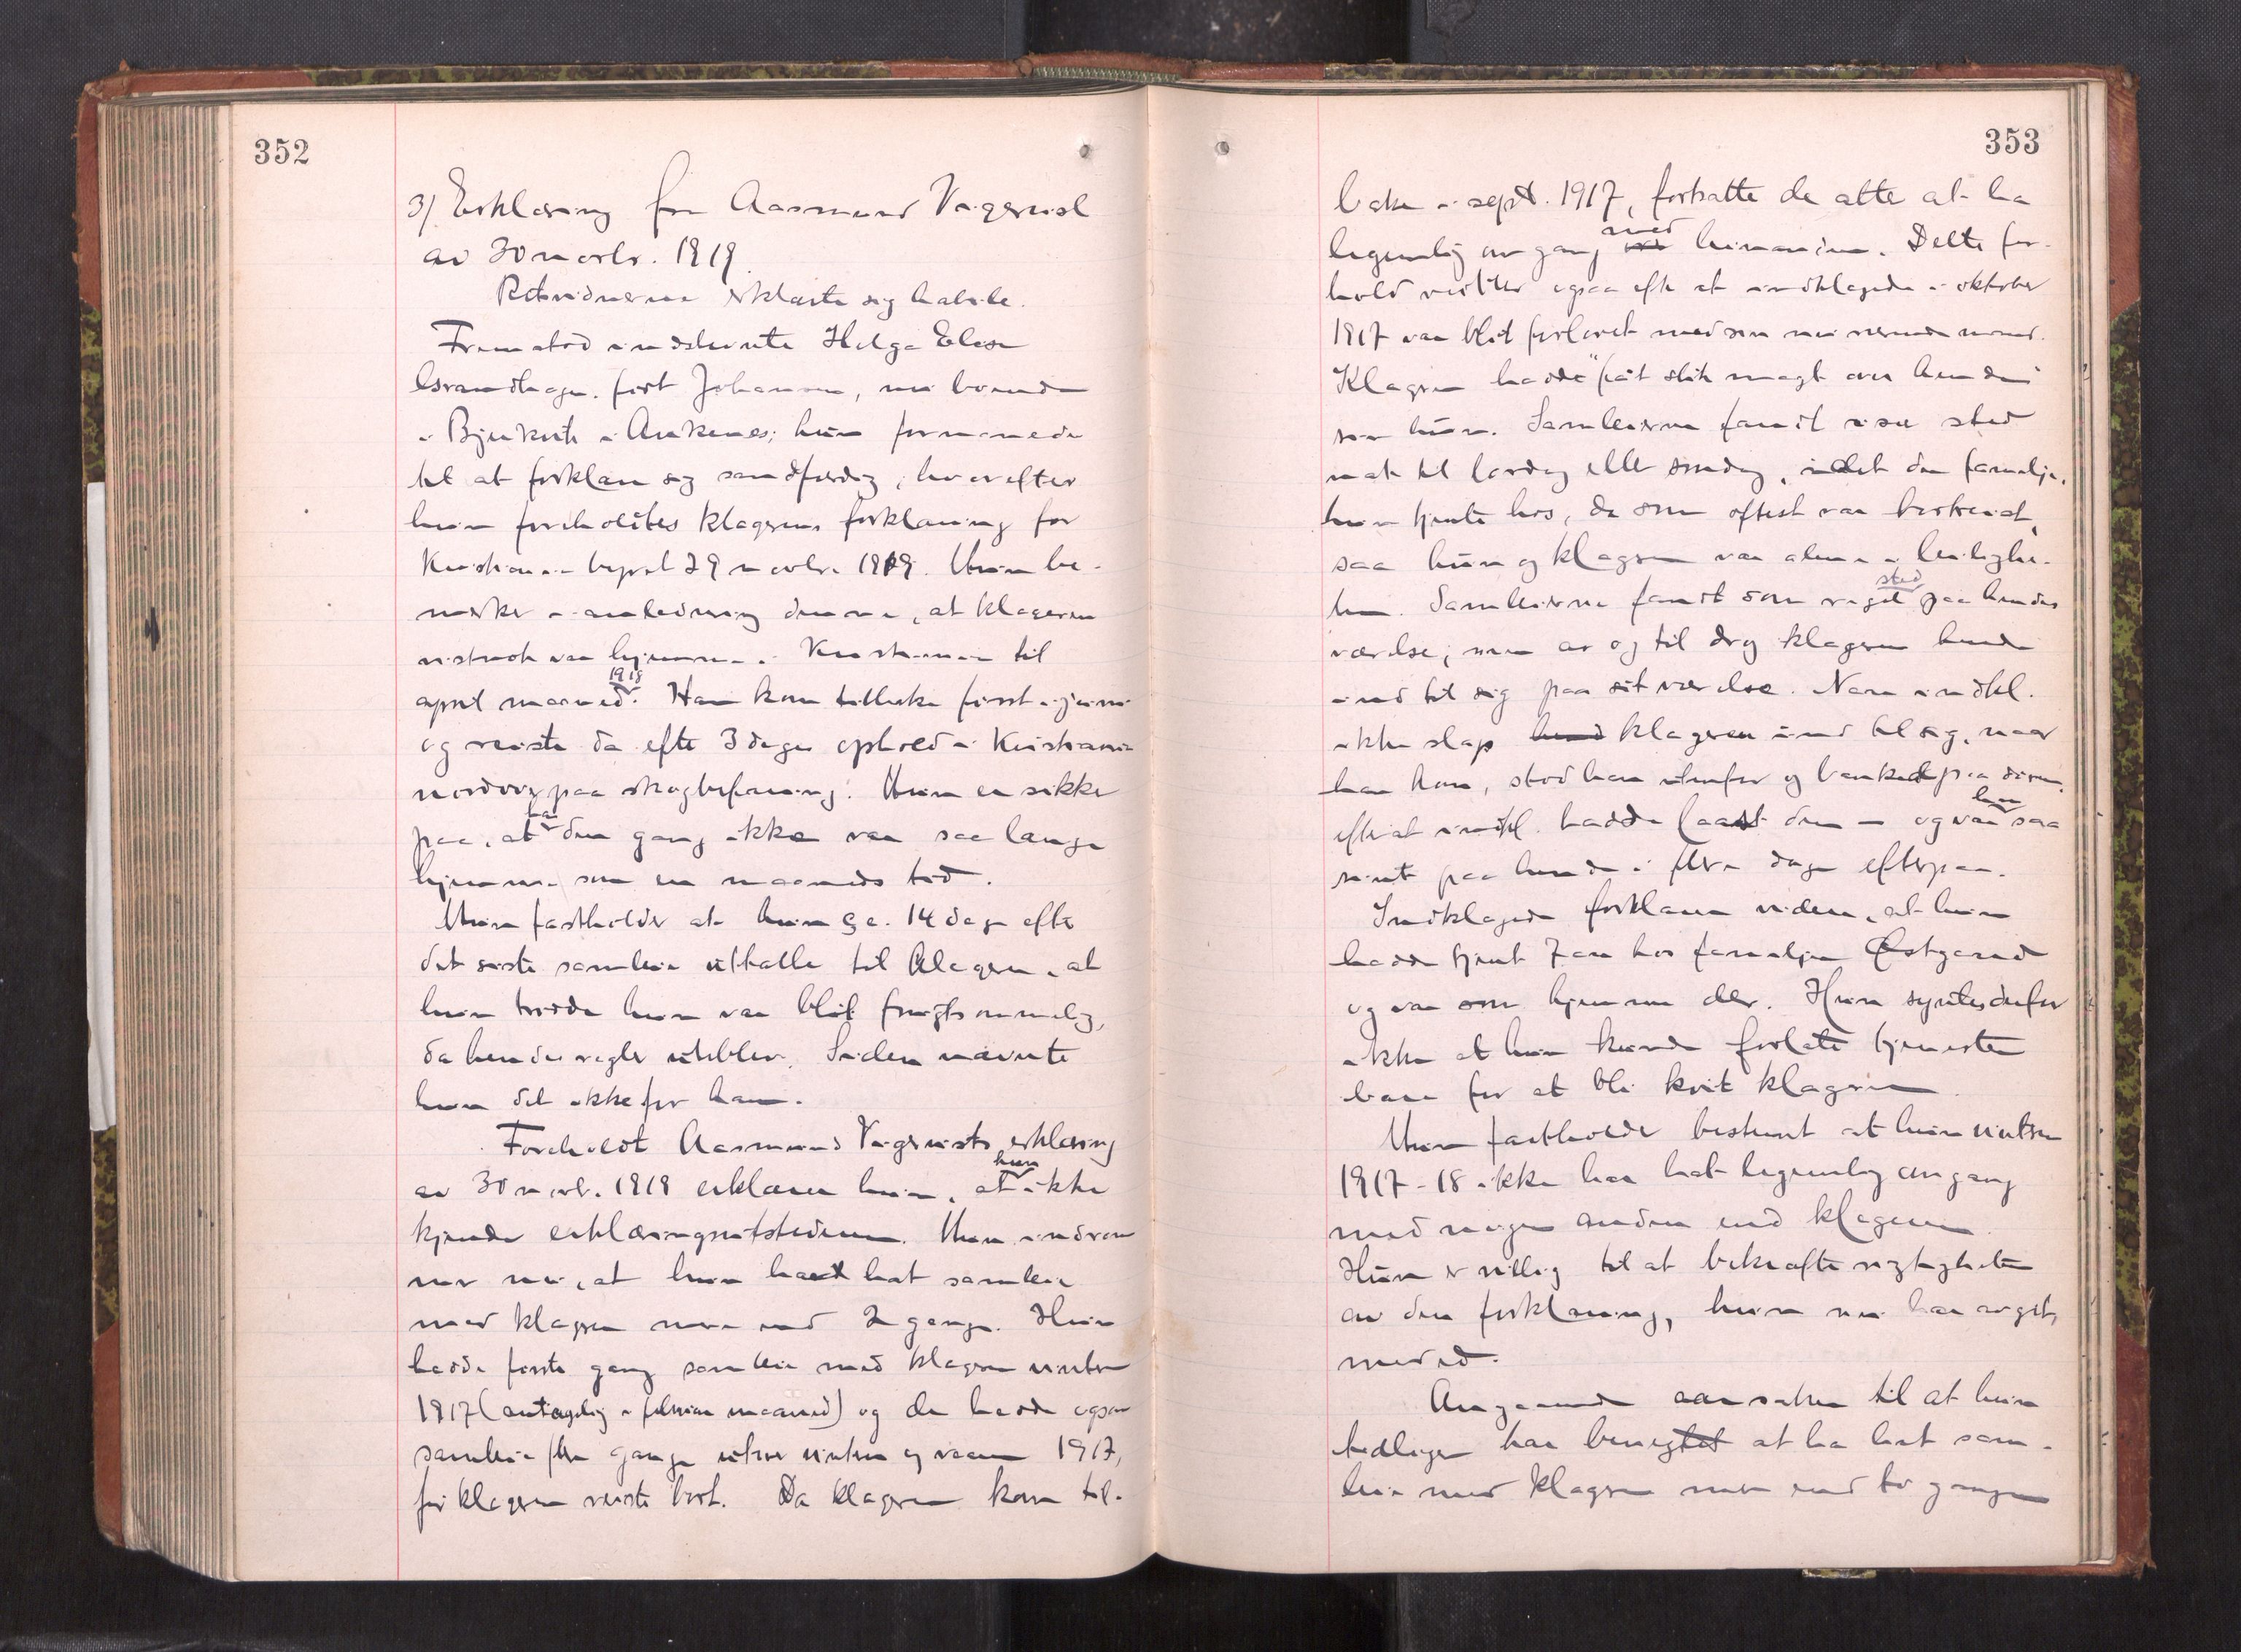 352
3) Erklæring fra Aasmund Vigerust
av 30 novbr. 1919.
Retsvidnerne erklærte sig habile.
Fremstod indstevnte Helga Elise
Israndhagen, født Johansen, nu boende
i Bjerkvik i Ankenes; hun formanedes
til at forklare sig sandfærdig, hvorefter
hun foreholdtes klagerens forklaring for
Kristiania byret 29 novbr. 1919. Hun be-
merker i anledning denne, at klageren
nistnok var hjemme i Kristiania til
april maaned 1918. Han kom tilbake først i juni
og reiste da efter 3 dages ophold i Kristiania
nordover paa skogbefaring. Hun er sikker
paa, at han den gang ikke var saa længe
hjemme som en maaneds tid.
Hun fastholder at hun ca. 14 dage efter
det siste samleie uttalte til klageren, at
hun trodde hun var blit frugtsommelig,
da hendes regler uteblev. Siden nævnte
hun det ikke for ham.
Foreholdt Aasmund Vigerusts erklæring
av 30 novbr. 1919 erklærer hun, at hun ikke
kjender erklæringsutstederen. Hun indrøm
mer nu, at hun har hat samleie
med klageren mere end 2 gange. Hun
hadde første gang samleie med klageren vinteren
1917 (antagelig i februar maaned) og de hadde ogsaa
samleie flere gange utover vinteren og vaaren 1917,
før klageren reiste bort. Da klageren kom til-
353
bake i sept. 1917, fortsatte de atter at ha
legemlig omgang med hinanden. Dette for-
hold vedblev ogsaa efter at indklagede i oktober
1917 var blit forlovet med sin nu værende mand.
Klageren hadde "fåt slik magt over hende"
sa hun. Samleierne fandt især sted
nat til lørdag eller søndag, idet den familje,
hun tjente hos, da som oftest var bortreist,
saa hun og klageren var alene i leilighe-
ten. Samleierne fandt som regel sted paa hendes
værelse; men av og til drog klageren hende
ind til sig paa sit værelse. Naar indkl.
ikke slap klageren ind til sig, naar
han kom, stod han utenfor og banket paa døren,
efterat indkl. hadde laast den – og var han saa
sint paa hende i flere dage efterpaa.
Indklagede forklarer videre, at hun
hadde tjent 7 aar hos familjen Østgaard
og var som hjemme der. Hun syntes derfor
ikke at hun kunde forlate tjenesten
bare for at bli kvit klageren.
Hun fastholder bestemt at hun vinteren
1917-18 ikke har hat legemlig omgang
med nogen anden end klageren.
Hun er villig til at bekræfte rigtigheten
av den forklaring, hun nu har avgit,
med ed.
Angaaende aarsaken til at hun
tidligere har benegtet at ha hat sam-
leie med klageren mer end to gange